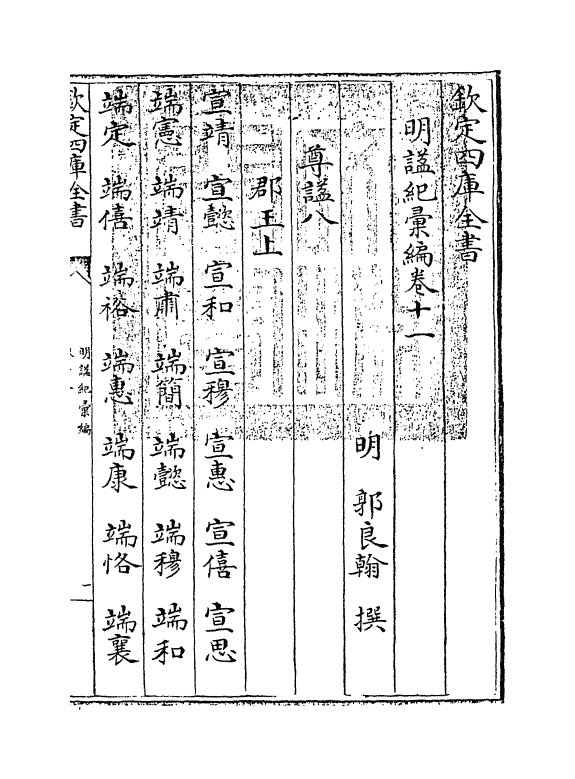 欽定四庫全書
明諡紀彙編卷十一
明 郭良翰 撰
尊諡八
郡王上
宣靖 宣懿 宣和 宣穆 宣惠 宣僖 宣思
端憲 端靖 端肅 端簡 端懿 端穆 端和
端定 端僖 端裕 端惠 端康 端恪 端襄
欽定四庫全書
明諡紀彙編
一